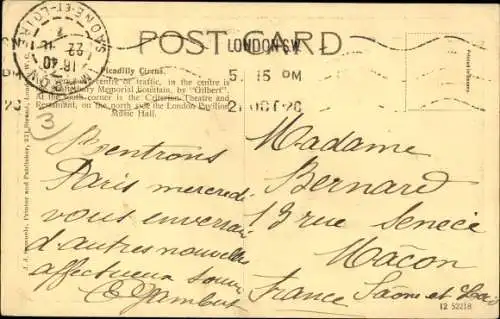 SAONE-ET-LOIRE
16·40
22
MACON
POST CARD
LONDON. S.W.
5. 15 PM
21 OCT 20
Piccadilly Circus.
centre of traffic, in the centre is
Shaftesbury Memorial Fountain, by "Gilbert".
At the south corner is the Criterion Theatre and
Restaurant, on the north side the London Pavilion
Music Hall.
Printer and Publisher,
3
rentrons
Paris mercredi
vous enverrai
d'autres nouvelles
affectueux
Madame
Bernard
13 rue Senecé
Mâcon
France Saône et Loire
12 52218